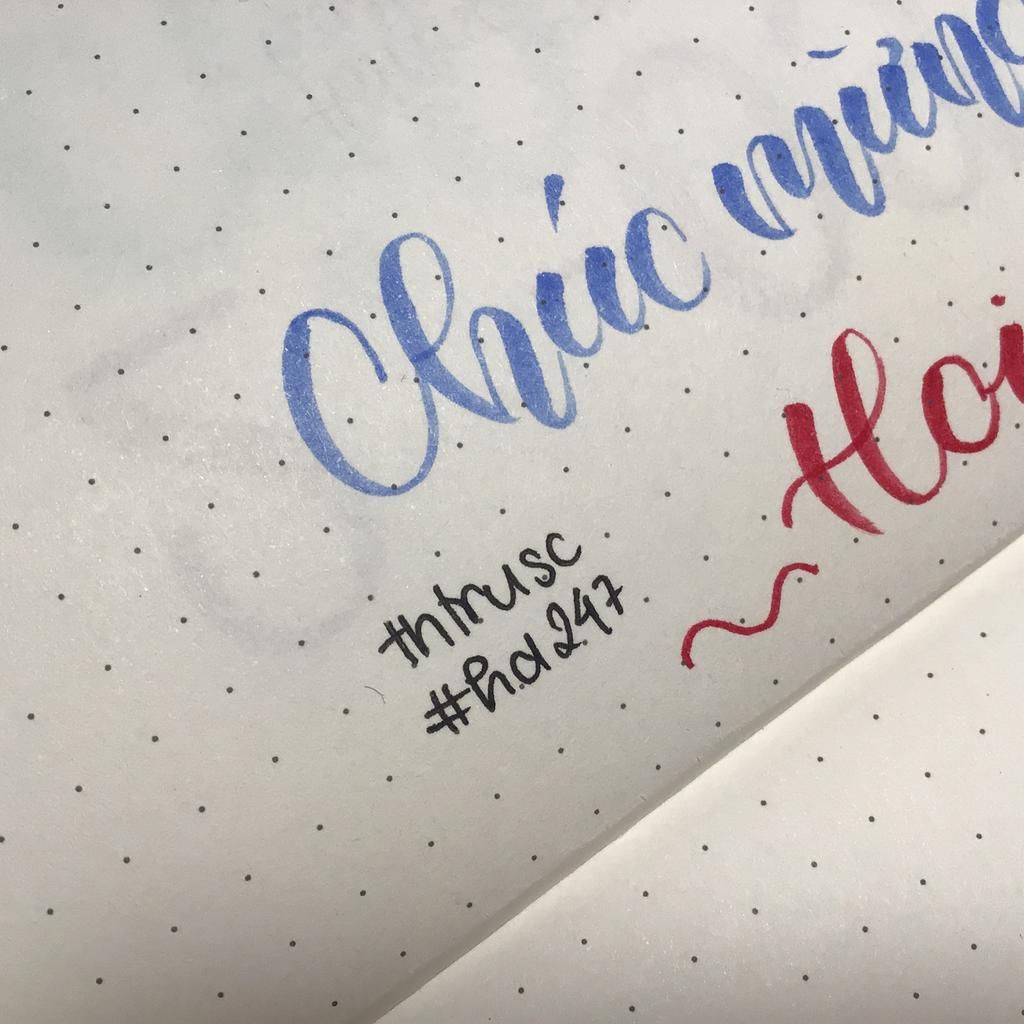 Chúc mừng
Hoi
thtrusc
#h.d247